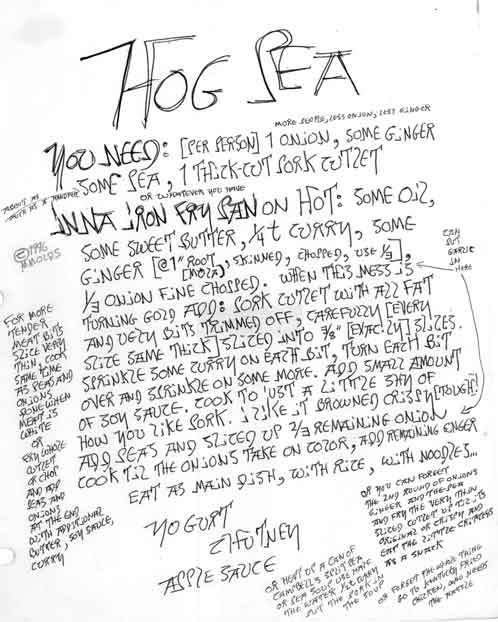 HOG PEA
MORE PEOPLE, LESS ONION, LESS GINGER
YOU NEED: [PER PERSON] 1 ONION, SOME GINGER
SOME PEA, 1 THICK-CUT PORK CUTLET
OR WHATEVER YOU HAVE
INNA IRON FRY PAN ON HOT: SOME OIL,
SOME SWEET BUTTER, 1/4 t CURRY, SOME
GINGER [@ 1" ROOT, SKINNED, CHOPPED, USE 1/3],
1/3 ONION FINE CHOPPED. WHEN THIS MESS IS
TURNING GOLD ADD: PORK CUTLET WITH ALL FAT
AND UGLY BITS TRIMMED OFF, CAREFULLY [EVERY
SLICE SAME THICK] SLICED INTO 3/8" [EXACTLY] SLICES.
SPRINKLE SOME CURRY ON EACH BIT, TURN EACH BIT
OVER AND SPRINKLE ON SOME MORE. ADD SMALL AMOUNT
OF SOY SAUCE. COOK TO JUST A LITTLE SHY OF
HOW YOU LIKE PORK. I LIKE IT BROWNED CRISPY [TOUGH]
ADD PEAS AND SLICED UP 2/3 REMAINING ONION
COOK TIL THE ONIONS TAKE ON COLOR, ADD REMAINING GINGER
EAT AS MAIN DISH, WITH RICE, WITH NOODLES...
YOGURT
CHUTNEY
APPLE SAUCE
©1996
CAN
PUT
GARLIC
IN
HERE
FOR MORE
TENDER
MEAT BITS
SLICE VERY
THIN, COOK
SAME TIME
AS PEAS AND
ONIONS
WHEN
MEAT IS
WHITE
OR
FRY WHOLE
CUTLET
OR CHOP
AND ADD
PEAS AND
ONIONS
AT THE END
WITH ADDITIONAL
BUTTER, SOY SAUCE,
CURRY
OR YOU CAN FORGET
THE 2ND ROUND OF ONIONS
GINGER AND THE PEA
AND FRY THE VERY THIN
SLICED CUTLET UP TIL ITS
ORIGINAL OR CRISPY AND
EAT THE LITTLE CRISPERS
AS A SNACK
OR HEAT UP A CAN OF
CAMPBELL'S SPLIT PEA
OR PEA SOUP USE HALF
THE WATER
PUT THE PORK IN
THE SOUP
OR FORGET THE WHOLE THING
GO TO KENTUCKY FRIED
CHICKEN, WHO NEEDS
THE HASSLE